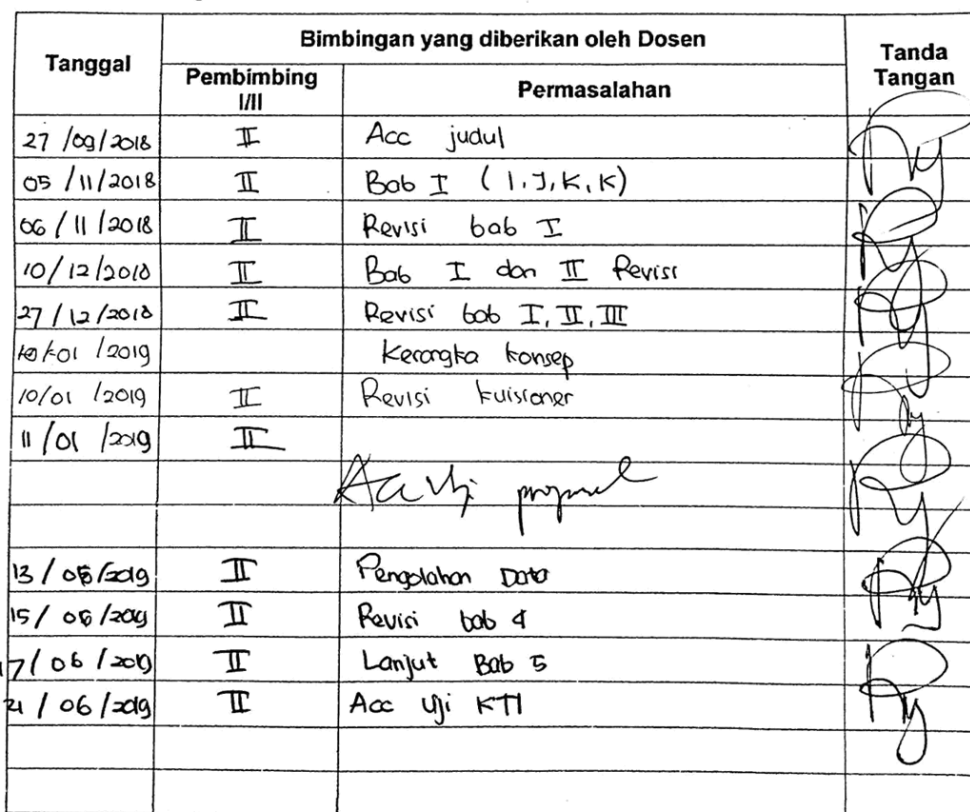 Tanggal
Bimbingan yang diberikan oleh Dosen
Tanda
Tangan
Pembimbing
I/II
Permasalahan
27 /09/2018 II Acc judul
05 /11/2018 II Bab I ( I, J, K, K)
06 / 11 /2018 II Revisi bab I
10/12/2018 II Bab I dan II Revisi
27/12/2018 II Revisi bab I, II, III
/01 /2019 Kerangka konsep
10/01 /2019 II Revisi kuisioner
11/01 /2019 II
Acc Uji proposal
13/ /2019 II Pengolahan Data
15/ /2019 II Revisi bab 4
17/06 /2019 II Lanjut Bab 5
21 / 06 /2019 II Acc Uji KTI